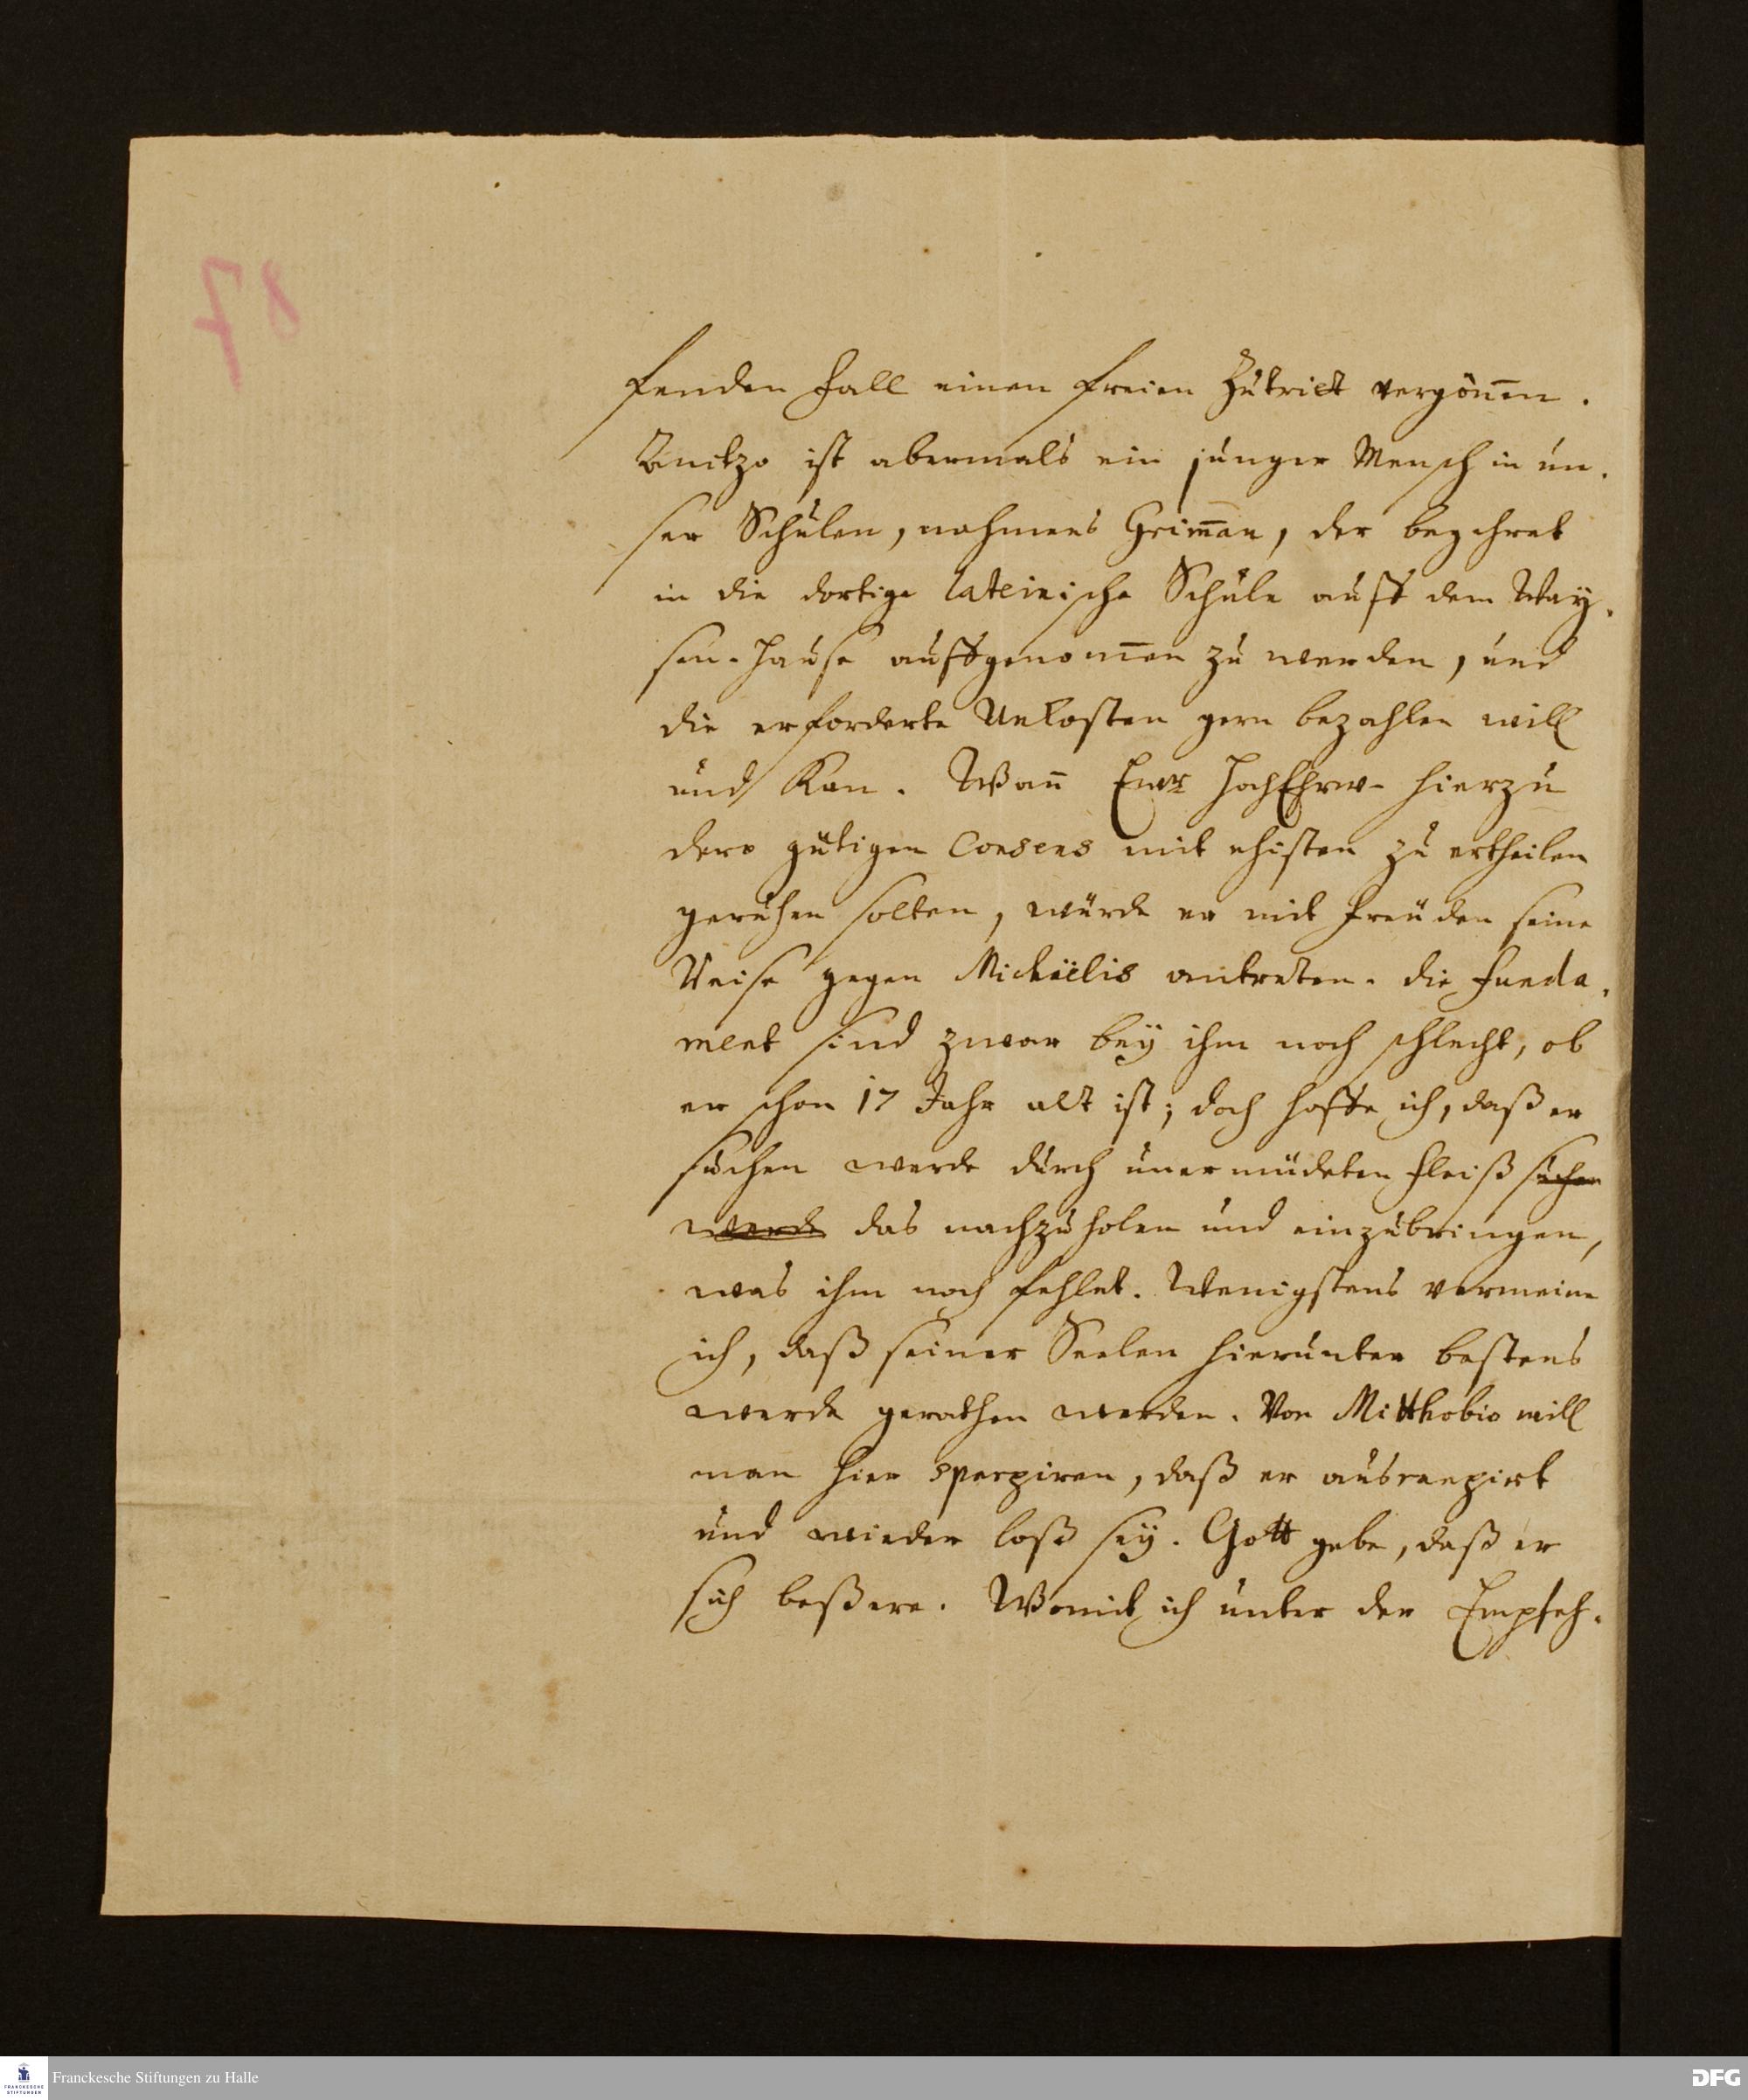 87
fenden Fall einen freien Zutritt vergön̅en.
Anitzo ist abermals ein junger Mensch in un-
ser Schulen, nahmens Grim̅an, der begehret
in die dortige lateinische Schule auff dem Way-
sen-Hause auffgenom̅en zu werden, und
die erforderte Unkosten gern bezahlen will
und kan. Wan̅ Ewr HochEhrw- hierzu
dero gütigen Consens mit ehisten zu ertheilen
geruhen solten, würde er mit Freuden seine
Reise gegen Michäelis antreten. die Funda-
ment sind zwar bey ihm noch schlecht, ob
er schon 17 Jahr alt ist; doch hoffe ich, daß er
suchen werde durch unermüdeten Fleiß suchen
werde das nachzuholen und einzubringen,
was ihm noch fehlet. Wenigstens vermeine
ich, daß seiner Seelen hierunter bestens
werde gerathen werden. Von Mitthobio will
man hier spargiren, daß er ausrangirt
und wieder loß sey. Gott gebe, daß er
sich beßere. Womit ich unter der Empfeh-
Franckesche Stiftungen zu Halle
FRANCKESCHE STIFTUNGEN
DFG